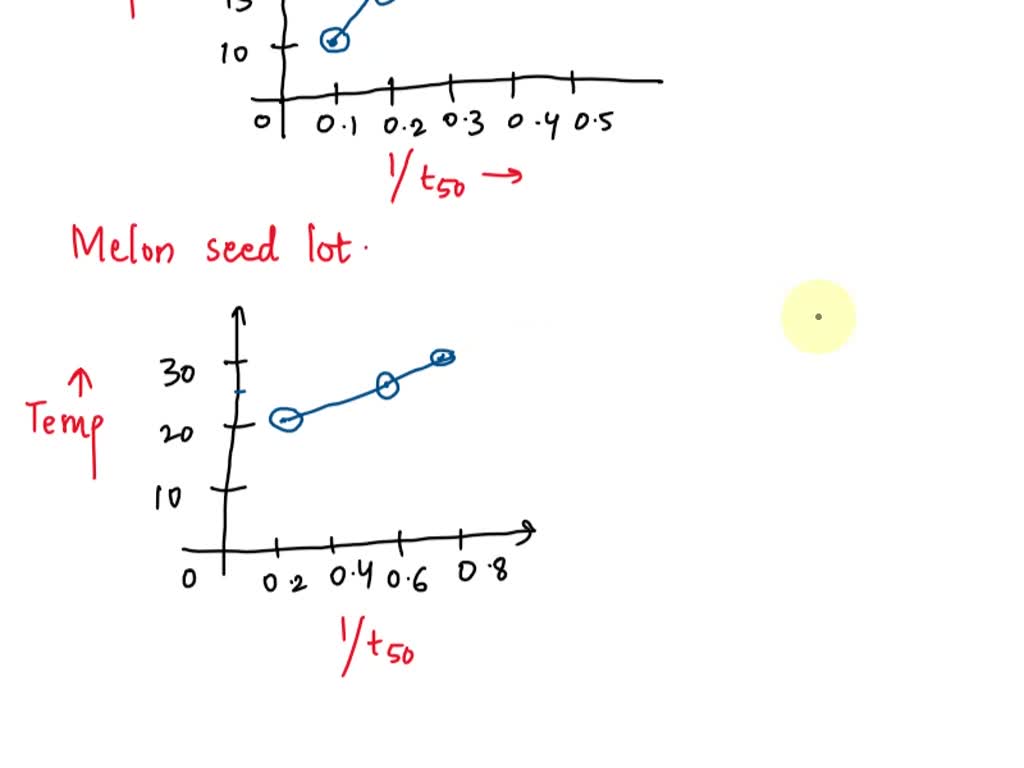 15
10
0 0.1 0.2 0.3 0.4 0.5
1/t50 →
Melon seed lot.
30
↑
Temp
20
10
0 0.2 0.4 0.6 0.8
1/t50